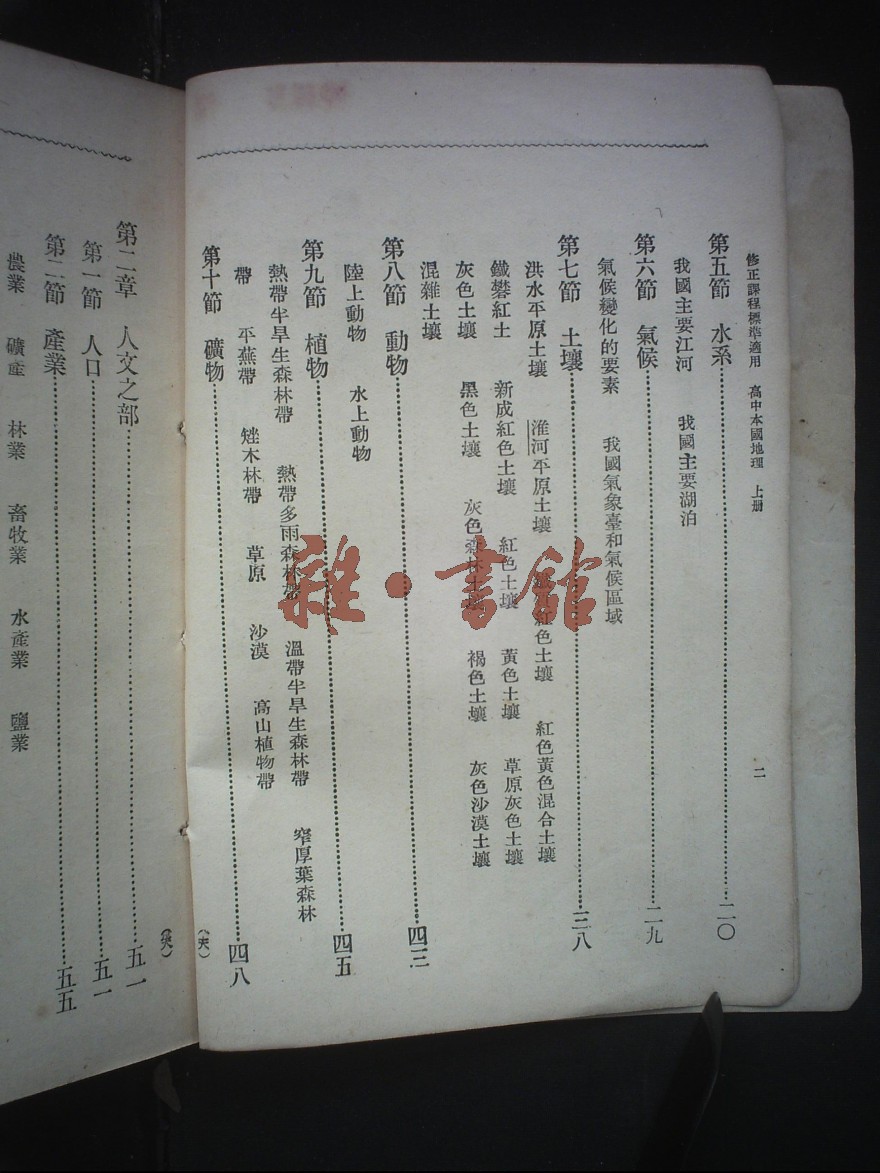 修正課程標準適用 高中本國地理 上册 二
第五節 水系 二〇
我國主要江河 我國主要湖泊
第六節 氣候 二九
氣候變化的要素 我國氣象臺和氣候區域
第七節 土壤 三八
洪水平原土壤 淮河平原土壤 紅色土壤 紅色黃色混合土壤
鐵礬紅土 新成紅色土壤 紅色土壤 黃色土壤 草原灰色土壤
灰色土壤 黑色土壤 灰色森林土壤 褐色土壤 灰色沙漠土壤
混雜土壤
第八節 動物 四三
陸上動物 水上動物
第九節 植物 四五
熱帶半旱生森林帶 熱帶多雨森林帶 溫帶半旱生森林帶 窄厚葉森林
帶 平蕪帶 矮木林帶 草原 沙漠 高山植物帶
第十節 礦物 四八
第二章 人文之部 五一
第一節 人口 五一
第二節 產業 五五
農業 礦產 林業 畜牧業 水產業 鹽業
雜·書館